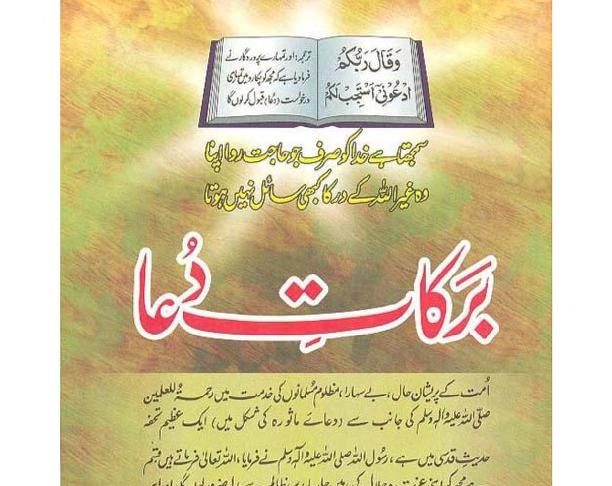 وَقَالَ رَبُّكُمُ
ادْعُوْنِیْ اَسْتَجِبْ لَکُمْ
ترجمہ: اور تمہارے پروردگار نے
فرمادیا ہے کہ مجھ کو پکارو میں تمہاری
درخواست دعا قبول کرلوں گا
سمجھتا ہے خدا کو صرف جو حاجت روا اپنا
وہ غیر اللہ کے در کا کبھی سائل نہیں ہوتا
بَرَکاتِ دُعا
اُمت کے پریشان حال، بے سہارا، مظلوم مسلمانوں کی خدمت میں رحمۃ للعلمین
صلی اللہ علیہ وآلہ وسلم کی جانب سے (دعائے ماثورہ کی شکل میں) ایک عظیم تحفہ
حدیث قدسی میں ہے، رسول اللہ صلی اللہ علیہ وآلہ وسلم نے فرمایا، اللہ تعالیٰ فرماتے ہیں قسم ہے